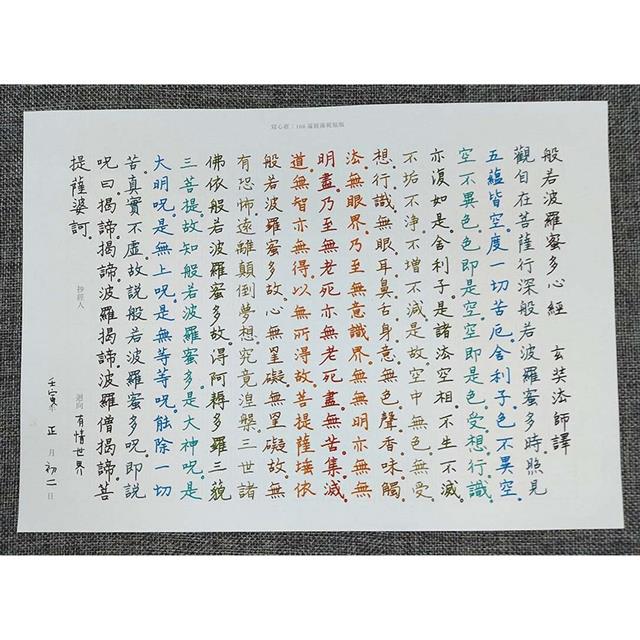 般若波羅蜜多心經 玄奘法師譯
觀自在菩薩。行深般若波羅蜜多時。照見
五蘊皆空。度一切苦厄。舍利子。色不異空。
空不異色。色即是空。空即是色。受想行識。
亦復如是。舍利子。是諸法空相。不生不滅。
不垢不淨。不增不減。是故空中無色。無受
想行識。無眼耳鼻舌身意。無色聲香味觸
法。無眼界。乃至無意識界。無無明。亦無無
明盡。乃至無老死。亦無老死盡。無苦集滅
道。無智亦無得。以無所得故。菩提薩埵。依
般若波羅蜜多故。心無罣礙。無罣礙故。無
有恐怖。遠離顛倒夢想。究竟涅槃。三世諸
佛。依般若波羅蜜多故。得阿耨多羅三藐
三菩提。故知般若波羅蜜多。是大神呪。是
大明呪。是無上呪。是無等等呪。能除一切
苦。真實不虛。故說般若波羅蜜多呪。即說
呪曰。揭諦。揭諦。波羅揭諦。波羅僧揭諦。菩
提薩婆訶。
抄經人
迴向 有情世界
壬寅年 正 月 初二 日